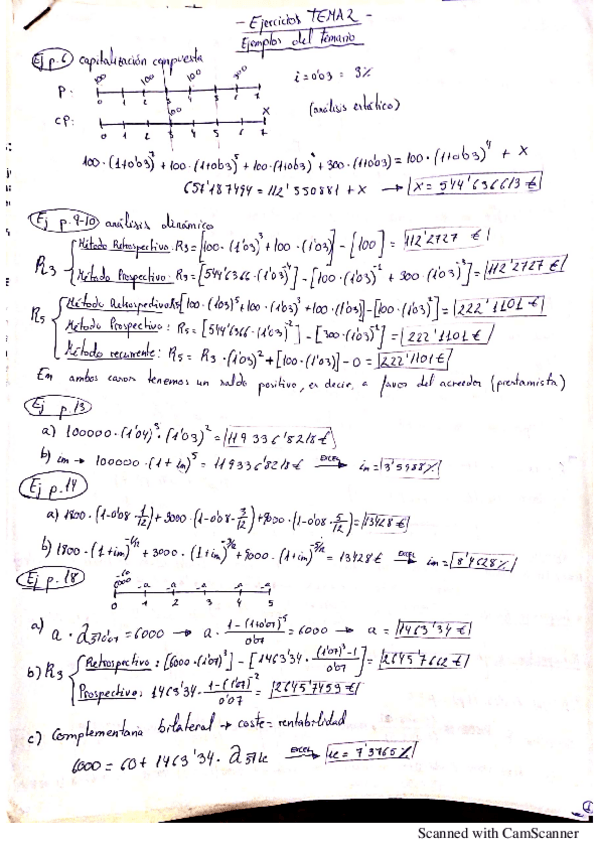 - Ejercicios TEMA 2 -
Ejemplos del temario
Ej p.6 capitalización compuesta
100 100 100 300
P: 0 1 2 3 4 5 6 7
i = 0'03 = 3%
(análisis estático)
100 X
CP: 0 1 2 3 4 5 6 7
100·(1+0'03)^7 + 100·(1+0'03)^5 + 100·(1+0'03)^4 + 300·(1+0'03) = 100·(1+0'03)^4 + X
= 112'550881 + X → X = 544'636613 €
Ej p.9-10 análisis dinámico
R3 Método Retrospectivo: R3 = [100·(1'03)^3 + 100·(1'03)] - [100] = 112'2727 €
Método Prospectivo: R3 = [544'6366·(1'03)^-4] - [100·(1'03)^-2 + 300·(1'03)^-3] = 112'2727 €
R5 Método Retrospectivo: R5 [100·(1'03)^5 + 100·(1'03)^3 + 100·(1'03)] - [100·(1'03)^2] = 222'1101 €
Método Prospectivo: R5 = [544'6366·(1'03)^-2] - [300·(1'03)^-2] = 222'1101 €
Método recurrente: R5 = R3·(1'03)^2 + [100·(1'03)] - 0 = 222'1101 €
En ambos casos tenemos un saldo positivo, es decir, a favor del acreedor (prestamista)
Ej p.13
a) 100000·(1'04)^3·(1'03)^2 = 119336'8218 €
b) im → 100000·(1+im)^5 = 119336'8218 € EXCEL → im = 3'5988%
Ej p.14
a) 1800·(1-0'08·1/12) + 3000·(1-0'08·3/12) + 9000·(1-0'08·5/12) = 13428 €
b) 1800·(1+im)^-1/12 + 3000·(1+im)^-3/12 + 9000·(1+im)^-5/12 = 13428 € EXCEL → im = 8'4628%
Ej p.18
6000 -a -a -a -a -a
0 1 2 3 4 5
a) a·a5|0'07 = 6000 → a·1-(1+0'07)^-5/0'07 = 6000 → a = 1463'34 €
b) R3 Retrospectivo: [6000·(1'07)^3] - [1463'34·(1'07)^3-1/0'07] = 2645'7662 €
Prospectivo: 1463'34·1-(1'07)^-2/0'07 = 2645'7459 €
c) Complementaria bilateral → coste = rentabilidad
6000 = 60 + 1463'34·a5|ic EXCEL → ic = 7'3765%
Scanned with CamScanner